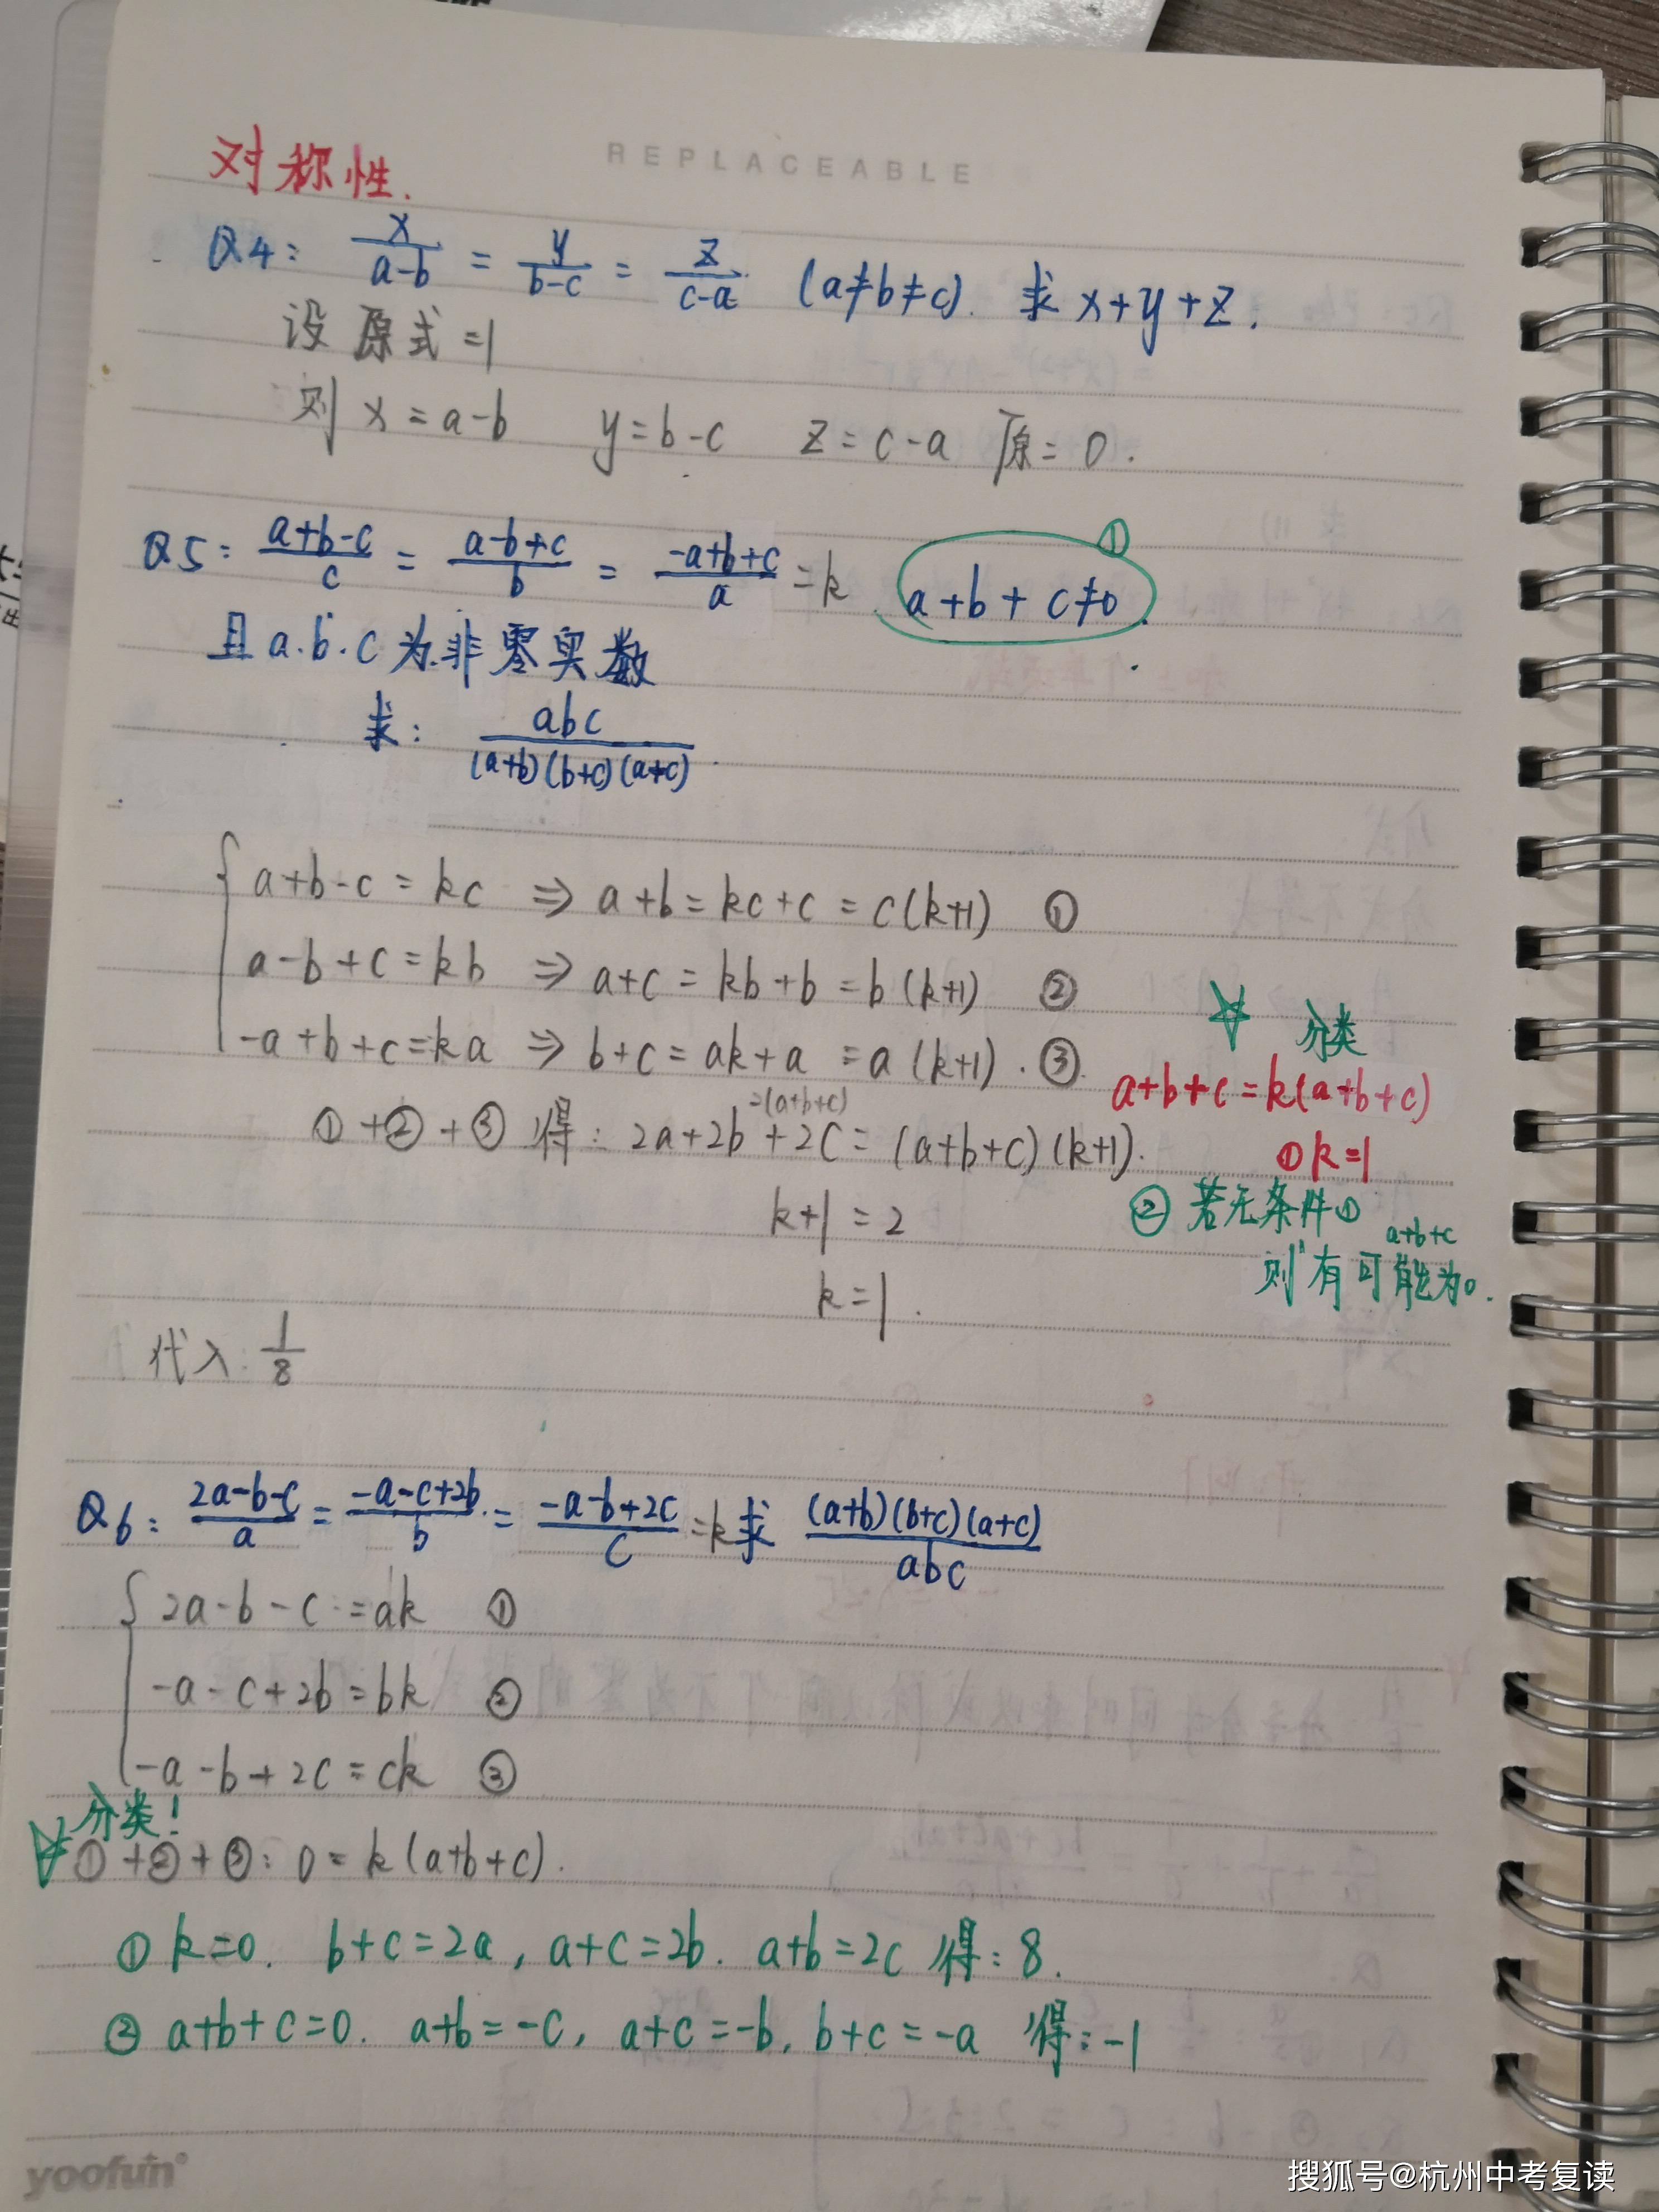 REPLACEABLE
对称性.
Q4: x/(a-b) = y/(b-c) = z/(c-a) (a≠b≠c). 求 x+y+z.
设原式=1
则 x=a-b y=b-c z=c-a 原=0.
Q5: (a+b-c)/c = (a-b+c)/b = (-a+b+c)/a =k. a+b+c≠0. ①
且a.b.c为非零实数
求: abc/(a+b)(b+c)(a+c).
a+b-c=kc ⇒ a+b=kc+c=c(k+1) ①
a-b+c=kb ⇒ a+c=kb+b=b(k+1) ②
-a+b+c=ka ⇒ b+c=ak+a=a(k+1). ③
☆ 分类
a+b+c=k(a+b+c)
①k=1
②若无条件①
则a+b+c有可能为0.
=2(a+b+c)
①+②+③得: 2a+2b+2c=(a+b+c)(k+1).
k+1=2
k=1.
代入: 1/8
Q6: (2a-b-c)/a = (-a-c+2b)/b = (-a-b+2c)/c =k 求 (a+b)(b+c)(a+c)/abc
2a-b-c=ak ①
-a-c+2b=bk ②
-a-b+2c=ck ③
☆分类!
①+②+③: 0=k(a+b+c).
①k=0. b+c=2a, a+c=2b. a+b=2c 得: 8.
②a+b+c=0. a+b=-c, a+c=-b, b+c=-a 得: -1
yoofun®
搜狐号@杭州中考复读